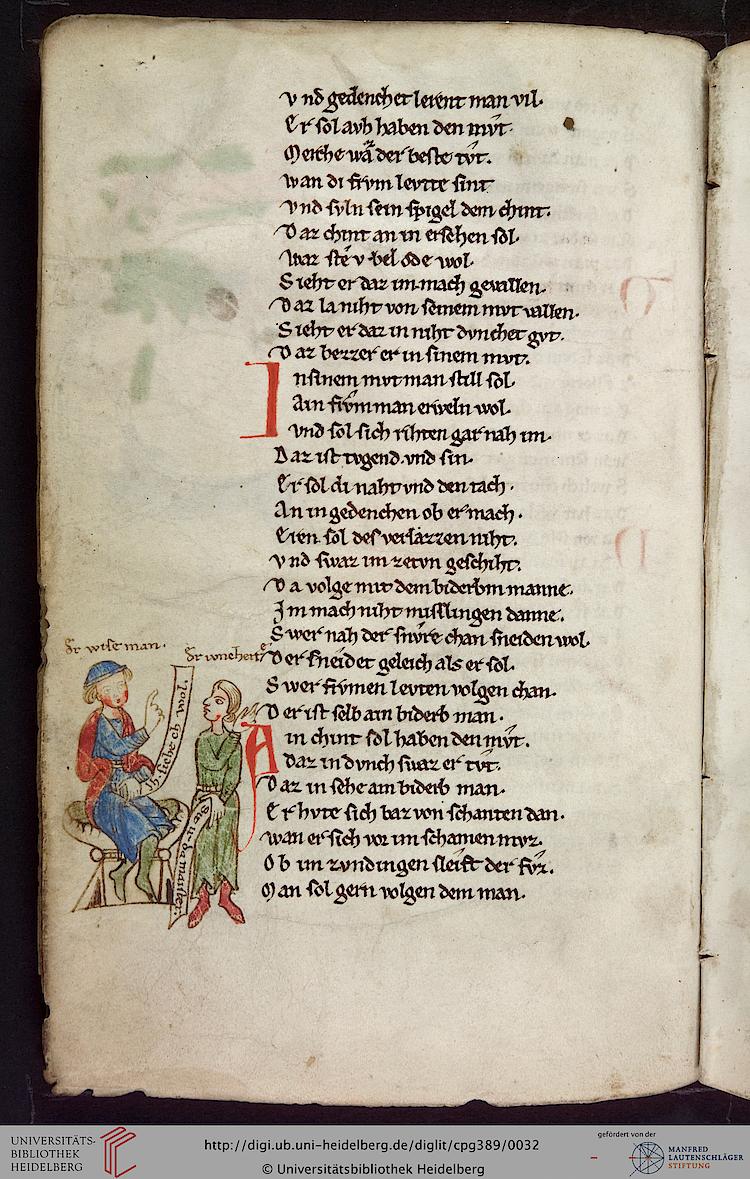 vnd gedenchet lerent man vil.
Er sol avh haben den mvͦt.
Merche waͤ der beste tvͦt.
wan di frvm levtte sint
vnd svln sein spigel dem chint.
Daz chint an in ersehen sol.
Waz ste v̓bel ode wol.
Sieht er daz im mach gevallen.
Daz la niht von seinem mvt vallen.
Sieht er daz in niht dvnchet gvt.
Daz bezzer er in sinem mvt.
In sinem mvt man still sol
Ain frvm man erweln wol.
vnd sol sich rihten gar nah im.
Daz ist tvgend vnd sin.
Er sol di naht vnd den tach.
An in gedenchen ob er mach.
sol des verlazzen niht.
vnd swaz im ze tvn geschiht.
Da volge mit dem biderbm manne.
Im mach niht misslingen danne.
Swer nah der snvͤre chan sneiden wol.
Der sneidet geleich als er sol.
Swer frvmen levten volgen chan.
Der ist selb ain biderb man.
Ain chint sol haben den mvͦt.
daz in dvnch swaz er tvͦt.
Daz in sehe ain biderb man.
Er hvte sich baz von schanten dan.
wan er sich vor im schamen mvz.
Ob im zvn dingen sleift der fvͦz.
Man sol gern volgen dem man.
Der wise man.
Der
ich siehe ch wol.
UNIVERSITÄTS-
BIBLIOTHEK
HEIDELBERG
http://digi.ub.uni-heidelberg.de/diglit/cpg389/0032
© Universitätsbibliothek Heidelberg
gefördert von der
MANFRED
LAUTENSCHLÄGER
STIFTUNG